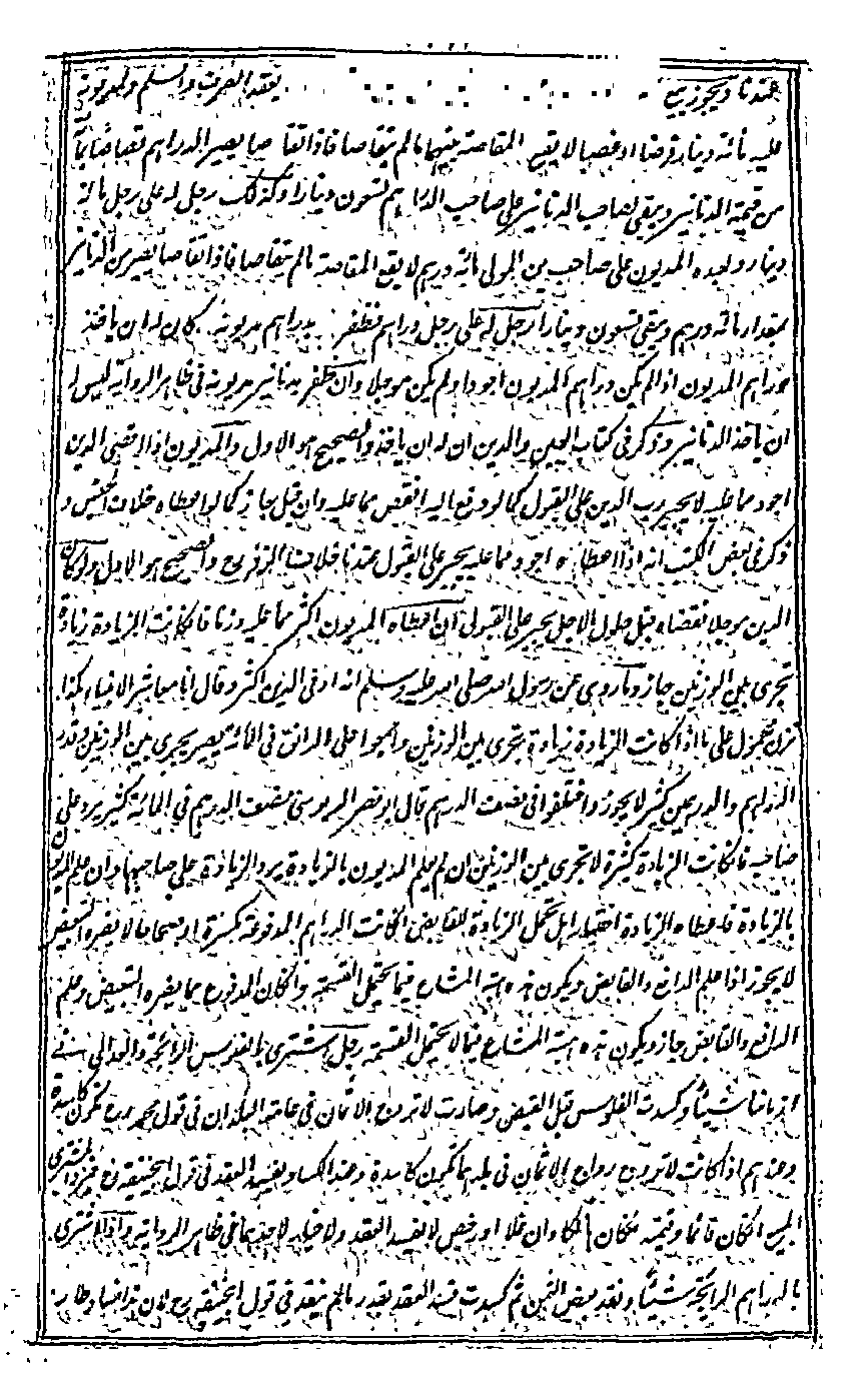 عندنا ويجوز بيع يعقد الصرف والسلم
عليه مائة دينار قرضا او غصبا لا يقع المقاصة بينهما ما لم يتقاصا فاذا تقاصا يصير الدراهم قصاصا بمائة
من قيمة الدنانير ويبقى لصاحب الدنانير على صاحب الدراهم تسعون دينارا وكذلك رجل له على رجل مائة
دينار ولهذه المديون على صاحب الدين مائة درهم لا يقع المقاصة ما لم يتقاصا فاذا تقاصا يصير من الدنانير
بمقدار مائة درهم ويبقى تسعون دينارا رجل له على رجل دراهم فظفر بدراهم مديونه كان له ان ياخذ
دراهم المديون اذا لم يكن دراهم المديون اجود او لم يكن موجلا وان ظفر بدنانير مديونه في ظاهر الرواية ليس له
ان ياخذ الدنانير وذكر في كتاب العين والدين ان له ان ياخذ والصحيح هو الاول والمديون اذا قضى الدين
اجود مما عليه لا يجبر رب الدين على القبول كما لو دفع اليه انقص مما عليه وان قبل جاز كما لو اعطاه خلاف الجنس و
ذكر في بعض الكتب انه اذا اعطاه اجود مما عليه يجبر على القبول عندنا خلافا لزفر رح والصحيح هو الاول ولو كان
الدين موجلا فقضاه قبل حلول الاجل يجبر على القبول ان اعطاه المديون اكثر مما عليه وزنا فان كانت الزيادة زيادة
تجرى بين الوزنين جاز وما روى عن رسول الله صلى الله عليه وسلم انه اوفى الدين اكثر وقال انا معاشر الانبياء هكذا
نزن محمول على ما اذا كانت الزيادة زيادة تجرى بين الوزنين واجمعوا على ان الدانق في المائة يسير يجرى بين الوزنين وقدر
الدراهم والدرهمين كثير لا يجوز واختلفوا في نصف الدرهم قال ابو نصر الدبوسي نصف الدرهم في المائة كثير يرد على
صاحبه فان كانت الزيادة كثيرة لا تجرى بين الوزنين ان لم يعلم المديون بالزيادة يرد الزيادة على صاحبها وان علم المديون
بالزيادة فاعطاه الزيادة اختيارا هل تحل الزيادة للقابض ان كانت الدراهم المدفوعة مكسرة او صحاحا لا يضره التبعيض
لا يجوز اذا علم الدافع والقابض ويكون هذه هبة المشاع فيما يحتمل القسمة وان كان المدفوع مما يضره التبعيض وعلم
الدافع والقابض جاز ويكون هذه هبة المشاع فيما لا يحتمل القسمة رجل اشترى بالفلوس الرائجة والعدالى في
زماننا شيئا وكسدت الفلوس قبل القبض وصارت لا تروج الاثمان في عامة البلدان في قول محمد رح تكون كاسدة
وعندهم اذا كانت لا تروج رواج الاثمان في بلدهما تكون كاسدة وعند الكساد يفسد العقد في قول ابي حنيفة رح فيرد المشترى
المبيع ان كان قائما وقيمته ان كان هالكا وان غلا او رخص لا يفسد العقد ولا خيار لاحدهما في ظاهر الرواية واذا اشترى
بالدراهم الرائجة شيئا ونقد بعض الثمن ثم كسدت فسد العقد بقدر ما لم ينقد في قول ابي حنيفة رح